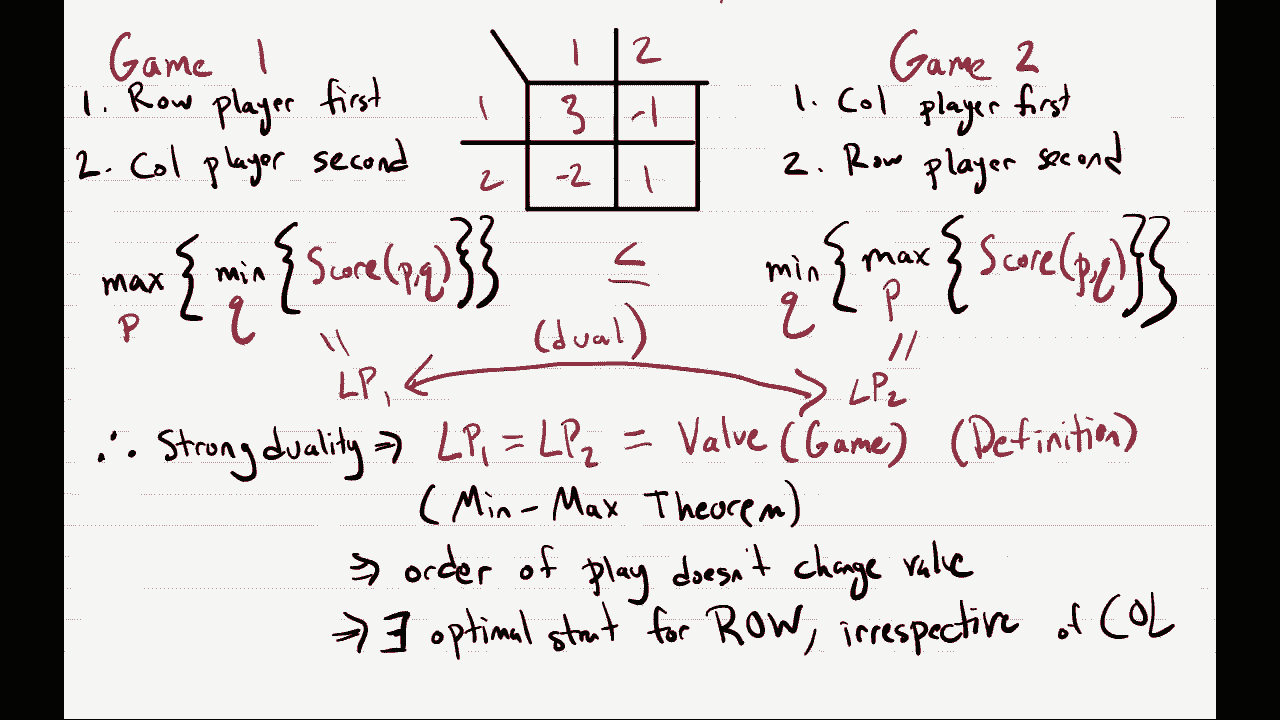 Game 1
1. Row player first
2. Col player second
1 2
1 3 -1
2 -2 1
Game 2
1. Col player first
2. Row player second
max { min { Score(p,q) } } ≤ min { max { Score(p,q) } }
p q q p
= (dual) =
LP₁ LP₂
∴ Strong duality ⇒ LP₁ = LP₂ = Value (Game) (Definition)
(Min-Max Theorem)
⇒ order of play doesn't change value
⇒ ∃ optimal strat for ROW, irrespective of COL